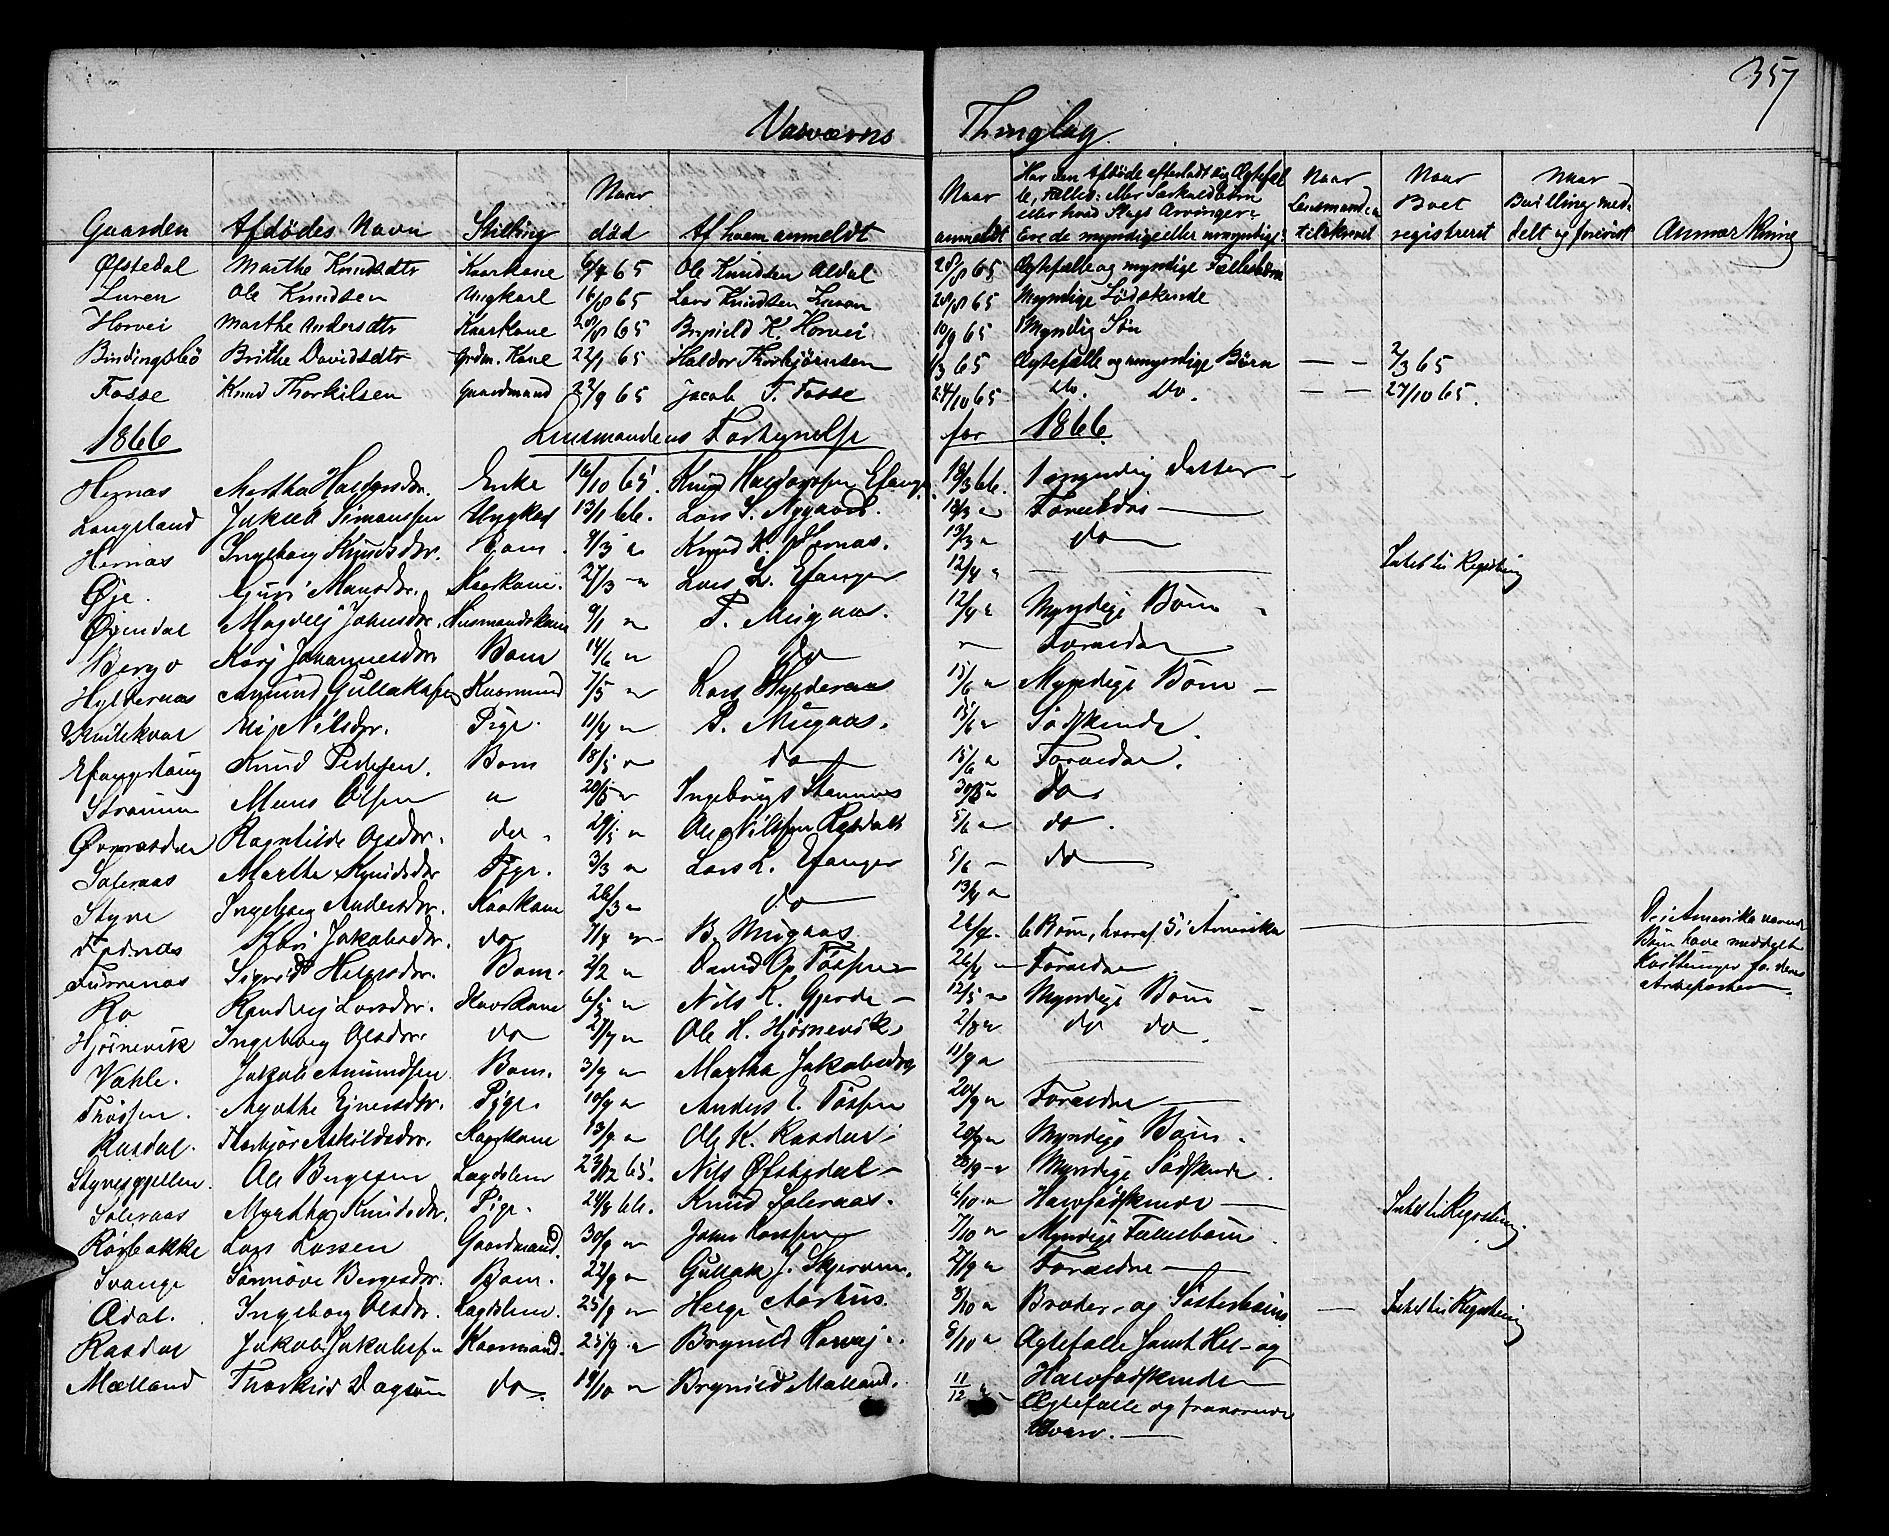 357
Vasværns Thinglag.
Gaarden | Afdødes Navn | Stilling | Naar død | Af hvem anmeldt | Naar anmeldt | Har den Afdøde efterladt sig Ægtefælle, Fælles- eller Særkuldsbørn eller hvad Slags Arvinger: Ere de myndige eller umyndige? | Naar Lensmanden tilskrevet | Naar Boet registreret | Naar Bevilling meddelt og foreviist | Anmærkning
Øfstedal | Marthe Knudsdtr | Kaarkone | 6/4 65 | Ole Knudsen Aldal | 28/8 65 | Ægtefælle og myndige Fællesbørn
Luren | Ole Knudsen | Ungkarl | 16/8 65 | Lars Knudsen Luren | 28/8 65 | Myndige Sødskende
Horvei | Marthe Andersdtr | Kaarkone | 20/8 65 | Brynild K. Horvei | 10/9 65 | Myndig Søn
Bindingsbø | Brithe Davidsdtr | Grdm. Kone | 22/1 65 | Haldor Thorbjørnsen | 1/3 65 | Ægtefælle og umyndige Børn | — — | 2/3 65
Fosse | Knud Thorkilsen | Gaardmand | 22/9 65 | Jacob T. Fosse | 24/10 65 | Do. Do. | — — | 27/10 65.
1866 Lensmandens Fortegnelse for 1866.
Hernæs | Martha Haldorsdr. | Enke | 16/10 65. | Knud Haldorssen Efanger | 18/3 66. | 1 myndig Datter —
Langeland | Jakob Simonssen | Ungkarl | 13/1 66. | Lars S. Nygaard. | 18/3 " | Forældre —
Hernæs | Ingeborg Knudsdr. | Barn. | 9/3 " | Knud K. Hernæs. | 13/3 " | do — | Intet til Registering
Øje. | Guri Mansdr. | Kaarkone. | 27/3 — " | Lars L. Efanger | 12/4 " | —
Øyendal | Magdeli Johnsdr. | Husmandskone | 9/1 " | P. Migaas. | 12/4 " | Myndige Børn —
Berge | Kari Johannesdr. | Barn | 14/6 " | do | " | Forældre
Hyldernæs | Amund Gullaksen | Kaarmand | 7/5 " | Lars Hylderaas | 15/6 " | Myndige Børn —
Kvitekval | Eli Nilsdr. | Pige. | 11/4 " | P. Migaas. | 15/6 " | Sødskende.
Efangertoug | Knud Pedersen. | Barn | 18/5 " | do | 15/6 " | Forældre.
Straume | Mons Olsen | " | 20/5 " | Ingebrigt Straumes | 30/5 " | do.
Øvrerasdal | Ragnhilde Olsdr. | do. | 29/5 " | Ole Nilssen Rasdals | 5/6 " | do.
Saleraas | Martha Knudsdr | Pige. | 3/3 " | Lars L. Efanger | 5/6 — | do —
Styve | Ingeborg Andersdr. | Kaarkone | 26/3 " | do | 13/4 "
Fadnes | Kari Jakobsdr. | do | 7/4 " | B. Migaas | 26/4. | 6 Børn, hvoraf 5 i Amerika — | De i Amerika værende Børn have meddelt Kvitteringer for deres Arveparter
Furrenæs | Sigrid Helgesdr. | Barn. | 2/2 " | David O. Tøssen | 26/4 — | Forældre
Ro | Randvei Larsdr. | Kaarkone | 6/5 " | Nils K. Gjerde — | 12/5 " | Myndige Børn —
Hjørnevik | Ingeborg Olsdr. | do | 27/7 " | Ole H. Hjørnevik | 2/8 " | do do.
Vahle. | Jakob Amundsen | Barn. | 3/9 " | Martha Jakobsdr. | 11/9 " | —
Tøssen. | Agathe Ejnersdr. | Pige. | 10/9 " | Anders E. Tøssen | 20/9 " | Forældre —
Rasdal. | Thorbjør Askildsdr. | Kaarkone | 13/9 " | Ole K. Rasdal | 20/9 " | Myndige Børn.
Styvesgjellen. | Ole Bergesen | Lægdslem | 23/12 65. | Nils Øfstedal — | 28/9 " | Myndige Sødskende.
Saleraas | Martha Knudsdr. | Pige. | 24/8 66. | Knud Saleraas. | 6/10 " | Halvsødskende — | Intet til Registering.
Rørbakke | Lars Larsen | Gaardmand. | 30/9 " | John Larssen | 7/10 " | Myndige Fællesbørn.
Svange | Sønnøve Bergesdr. | Barn. | 22/9 " | Gullak J. Skjervem. | 7/9 " | Forældre —
Ædal. | Ingeborg Olsdr. | Lægdslem. | 25/9 " | Helge Aarhus. | 8/10 " | Broder- og Søsterbørn — | Intet til Registering
Rasdal | Jakob Jakobsen | Kaarmand. | 25/9 " | Brynild Horvej. | 8/10 " | Ægtefælle samt Hel- og Halvsødskende
Mælland | Thorkild Dagsøn | do | 14/10 " | Brynild Mælland. | 11/12 " | Ægtefælle og fraværende Arving. —